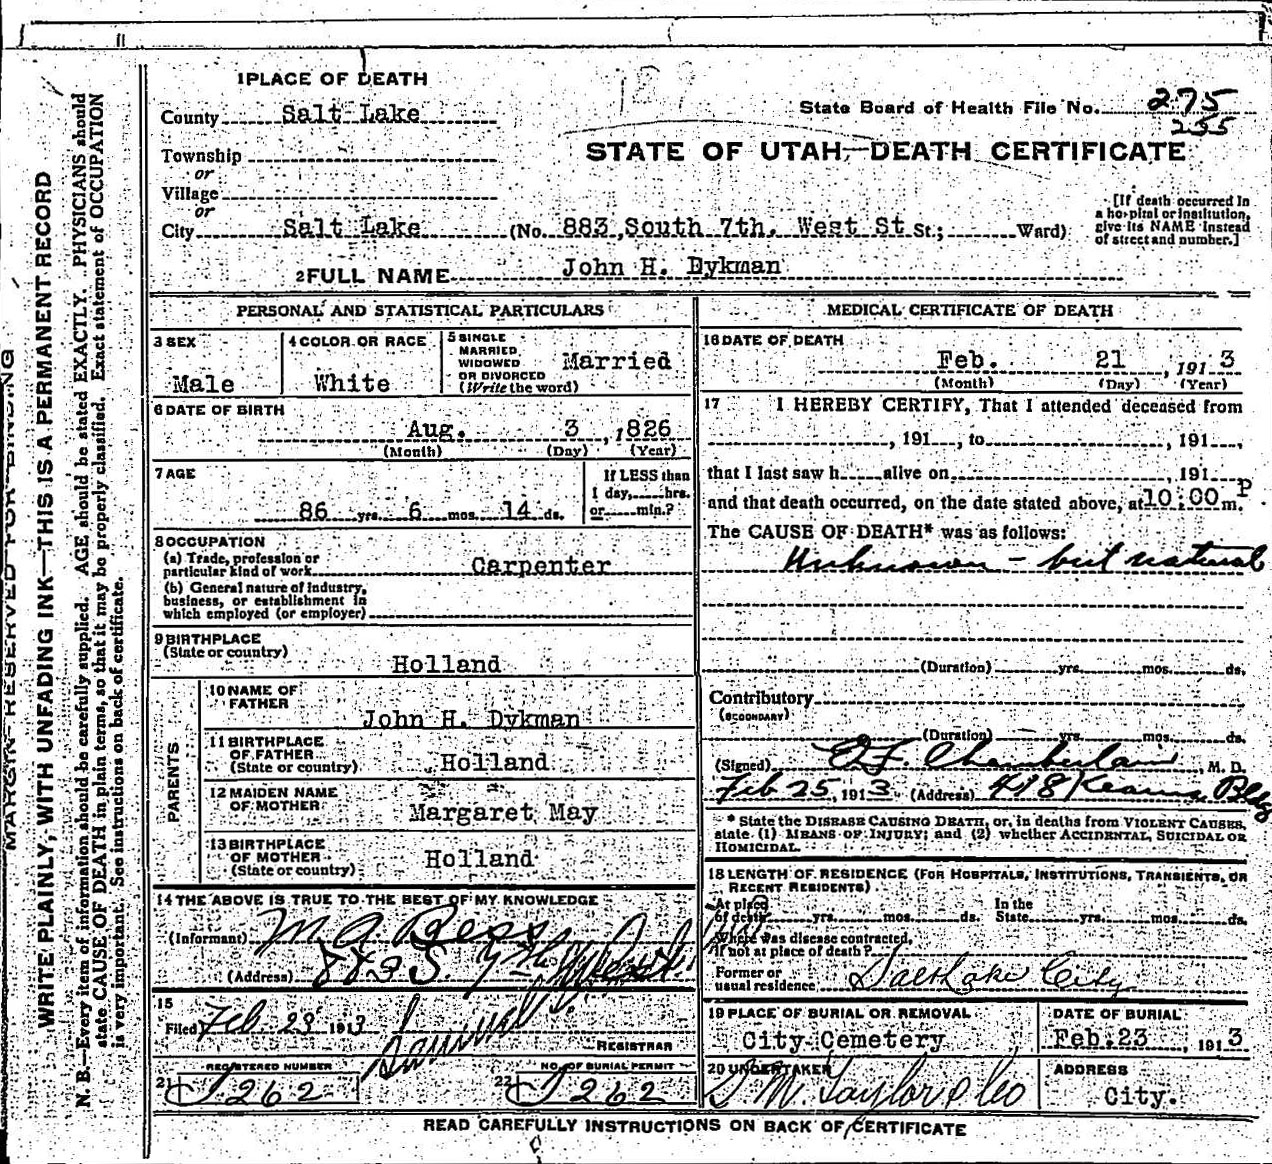 1 PLACE OF DEATH
County Salt Lake
State Board of Health File No. 275
255
STATE OF UTAH—DEATH CERTIFICATE
Township
or
Village
or
City Salt Lake (No. 883 South 7th. West St St.; Ward)
[If death occurred in
a hospital or institution,
give its NAME instead
of street and number.]
2 FULL NAME John H. Dykman
PERSONAL AND STATISTICAL PARTICULARS
3 SEX
Male
4 COLOR OR RACE
White
5 SINGLE
MARRIED
WIDOWED
OR DIVORCED
(Write the word)
Married
6 DATE OF BIRTH
Aug. 3, 1826
(Month) (Day) (Year)
7 AGE
86 yrs. 6 mos. 14 ds.
If LESS than
1 day, hrs.
or min.?
8 OCCUPATION
(a) Trade, profession or
particular kind of work Carpenter
(b) General nature of industry,
business, or establishment in
which employed (or employer)
9 BIRTHPLACE
(State or country)
Holland
PARENTS
10 NAME OF
FATHER
John H. Dykman
11 BIRTHPLACE
OF FATHER
(State or country) Holland
12 MAIDEN NAME
OF MOTHER Margaret May
13 BIRTHPLACE
OF MOTHER
(State or country) Holland
14 THE ABOVE IS TRUE TO THE BEST OF MY KNOWLEDGE
(Informant) M. A. Bess
(Address) 883 S. 7th West St.
15
Filed Feb 23 1913
REGISTRAR
REGISTERED NUMBER
21 262
NO. OF BURIAL PERMIT
22 262
MEDICAL CERTIFICATE OF DEATH
16 DATE OF DEATH
Feb. 21, 1913
(Month) (Day) (Year)
17 I HEREBY CERTIFY, That I attended deceased from
, 191 , to , 191 ,
that I last saw h alive on , 191
and that death occurred, on the date stated above, at 10:00 P m.
The CAUSE OF DEATH* was as follows:
Unknown - but natural
(Duration) yrs. mos. ds.
Contributory
(SECONDARY)
(Duration) yrs. mos. ds.
(Signed) E. F. Chamberlain, M. D.
Feb 25, 1913 (Address) 418 Kearns Bldg
* State the DISEASE CAUSING DEATH, or, in deaths from VIOLENT CAUSES,
state (1) MEANS OF INJURY; and (2) whether ACCIDENTAL, SUICIDAL OR
HOMICIDAL.
18 LENGTH OF RESIDENCE (FOR HOSPITALS, INSTITUTIONS, TRANSIENTS, OR
RECENT RESIDENTS)
At place
of death yrs. mos. ds.
In the
State yrs. mos. ds.
Where was disease contracted,
if not at place of death?
Former or
usual residence Salt Lake City
19 PLACE OF BURIAL OR REMOVAL
City Cemetery
DATE OF BURIAL
Feb. 23, 1913
20 UNDERTAKER
S. M. Taylor & Co
ADDRESS
City.
READ CAREFULLY INSTRUCTIONS ON BACK OF CERTIFICATE
MARGIN RESERVED FOR BINDING
WRITE PLAINLY, WITH UNFADING INK—THIS IS A PERMANENT RECORD
N. B.—Every item of information should be carefully supplied. AGE should be stated EXACTLY. PHYSICIANS should
state CAUSE OF DEATH in plain terms, so that it may be properly classified. Exact statement of OCCUPATION
is very important. See instructions on back of certificate.